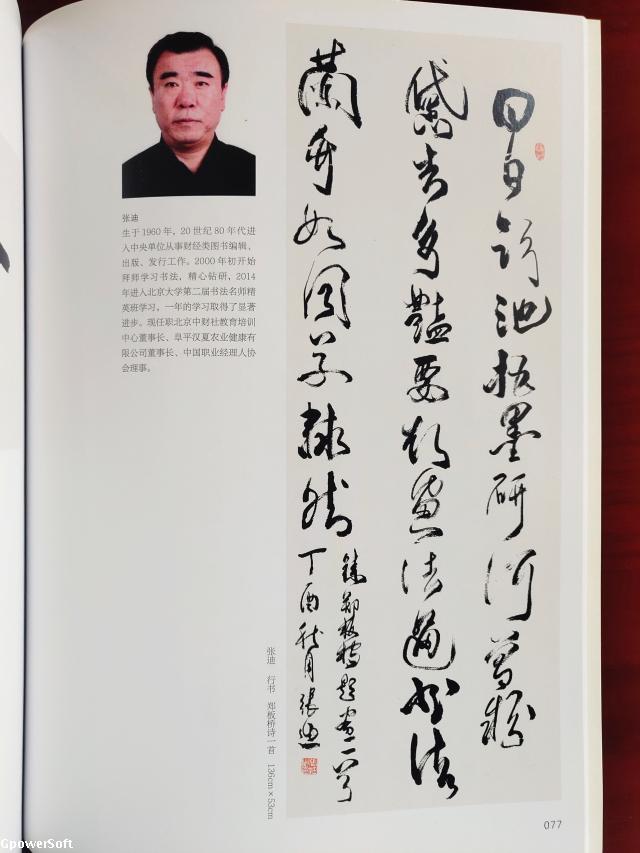 张迪
生于1960年，20世纪80年代进
入中央单位从事财经类图书编辑、
出版、发行工作。2000年初开始
拜师学习书法，精心钻研，2014
年进入北京大学第二届书法名师精
英班学习，一年的学习取得了显著
进步。现任职北京中财社教育培训
中心董事长、阜平汉夏农业健康有
限公司董事长、中国职业经理人协
会理事。
日日臨池把墨研何曾粉
黛去爭豔要知畫法通書法
蘭竹如同草隸然
錄鄭板橋題畫一首
丁酉秋月張迪
张迪 行书 郑板桥诗一首 136cm×53cm
077
GpowerSoft